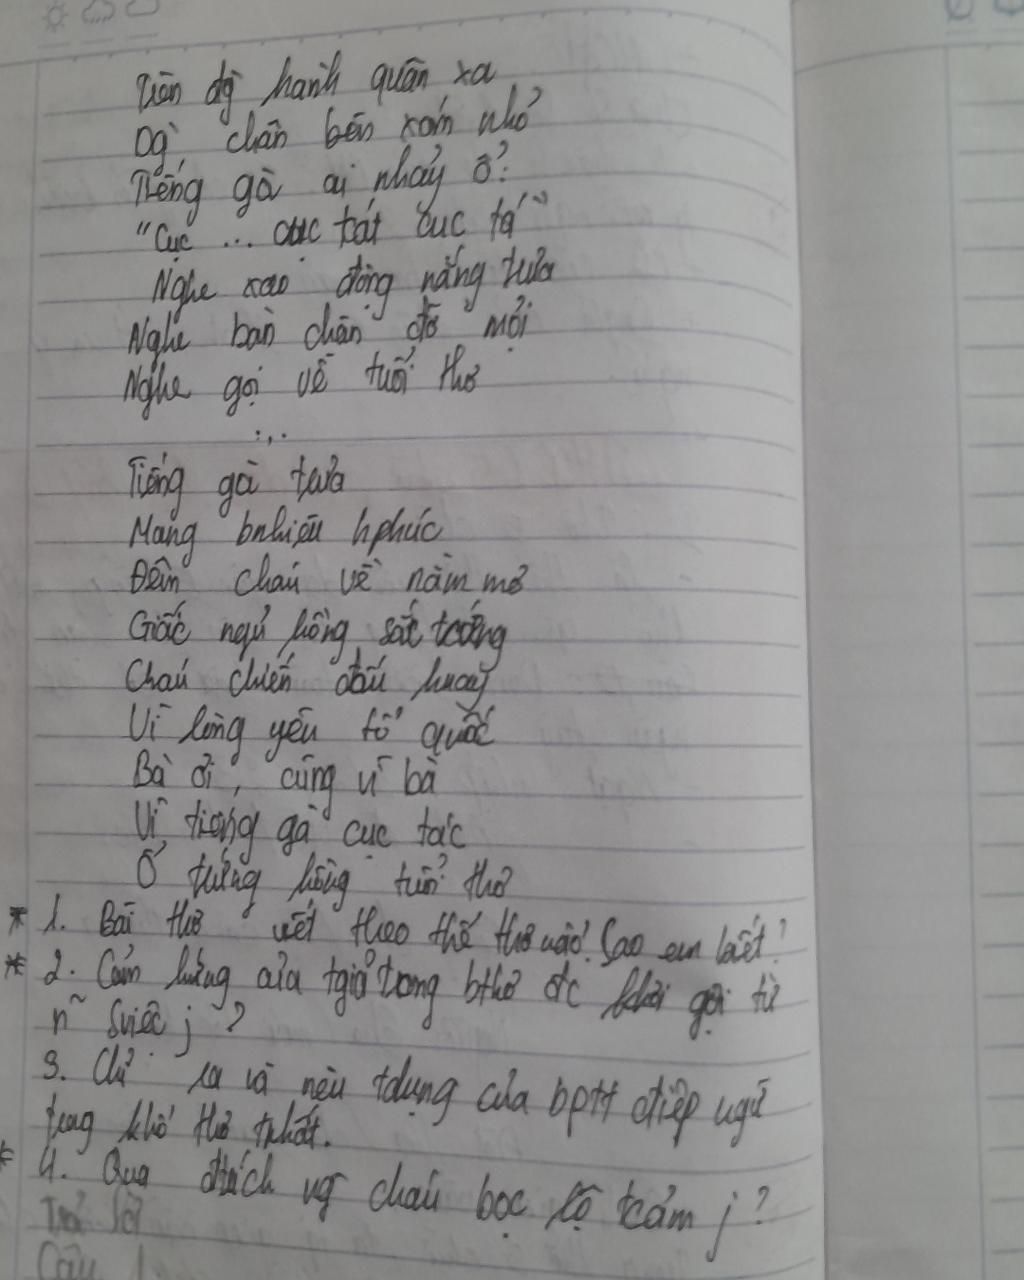 Trên đg hành quân xa
Dg chân bên xóm nhỏ
Tiếng gà ai nhảy ổ:
"Cục ... cục tát cục tá"
Nghe xao động nắng trưa
Nghe bàn chân đỡ mỏi
Nghe gọi về tuổi thơ
...
Tiếng gà trưa
Mang bnhiêu hphúc
Đêm cháu về nằm mơ
Giấc ngủ hồng sắc trứng
Cháu chiến đấu hnay
Vì lòng yêu tổ quốc
Bà ơi, cũng vì bà
Vì tiếng gà cục tác
Ổ trứng hồng tuổi thơ
* 1. Bài thơ viết theo thể thơ nào? Sao em biết?
* 2. Cảm hứng của tgiả trong bthơ đc khơi gợi từ
n~ sviệc j?
3. Chỉ ra và nêu tdụng của bptt điệp ngữ
trong khổ thơ tnhất.
* 4. Qua đtrích ng cháu bọc lộ tcảm j?
Trả lời
Câu 1